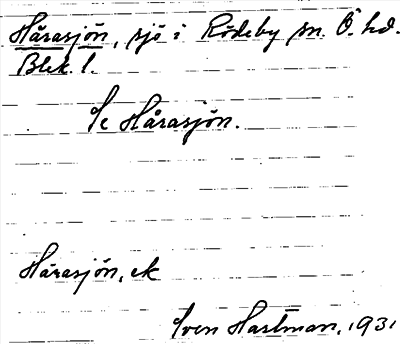 Härasjön, sjö i Rödeby sn. Ö. hd.
Blek. l.
Se Hårasjön.
Härasjön, ek
Sven Hartman, 1931